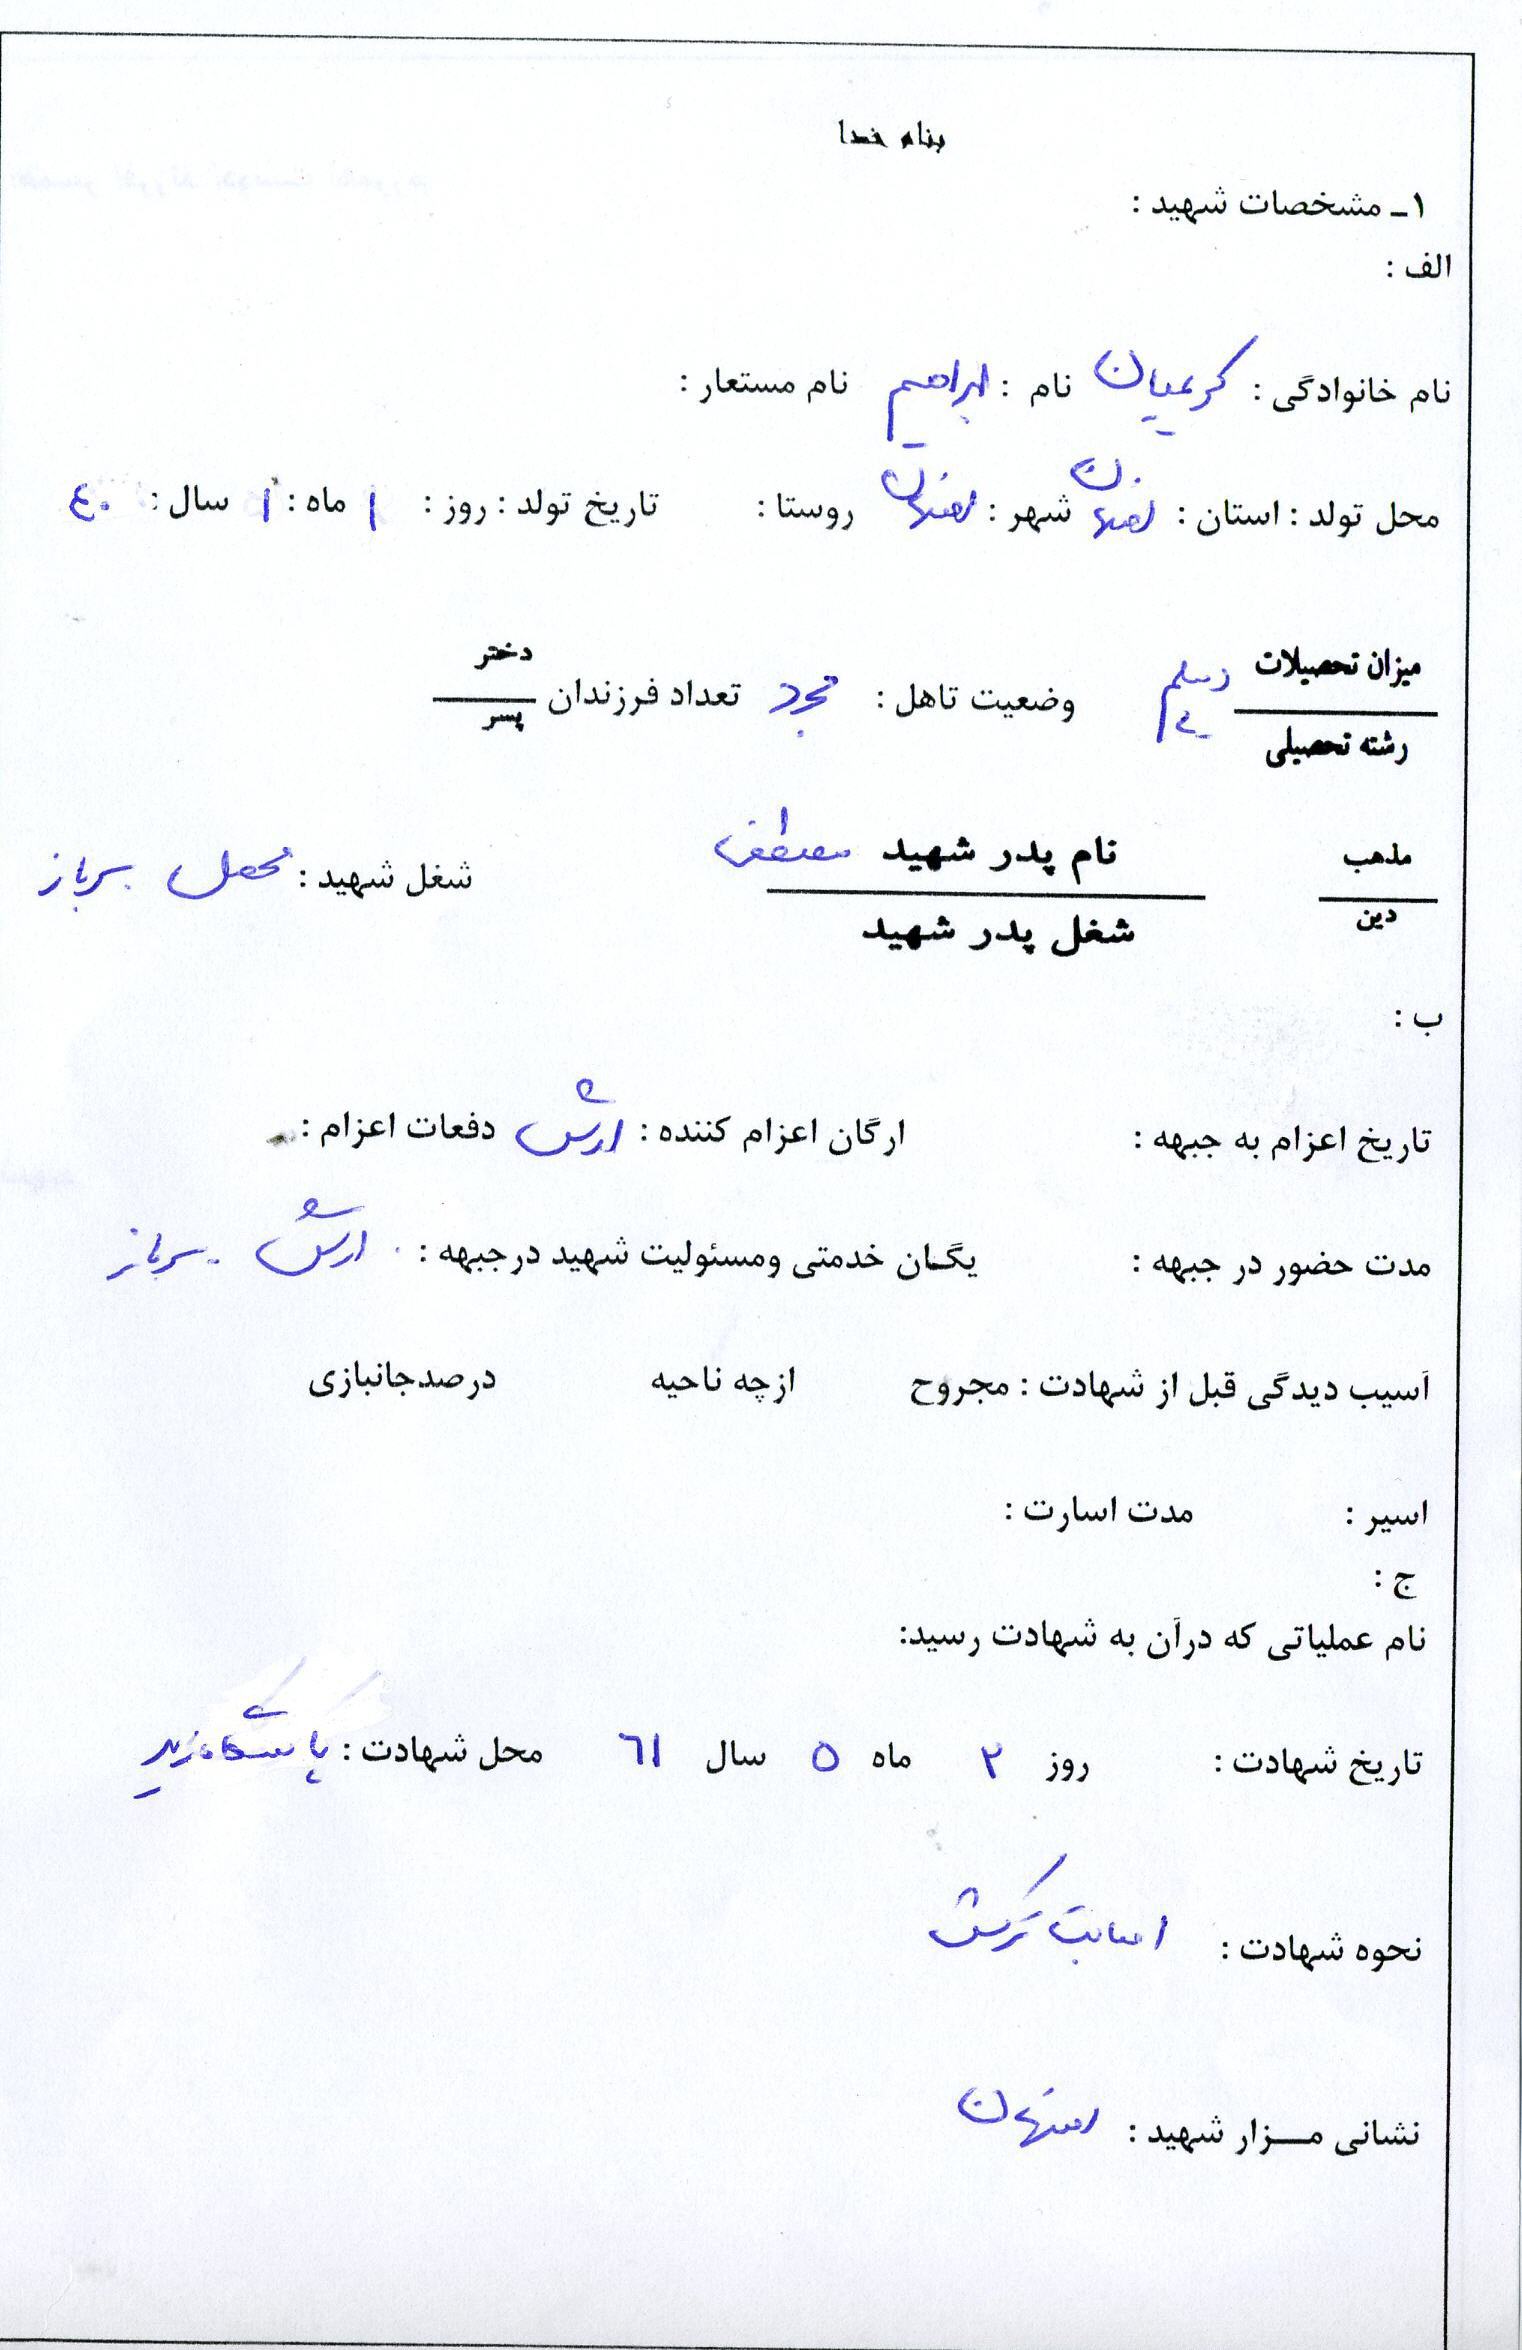 بنام خدا
۱ـ مشخصات شهید :
الف :
نام خانوادگی : کریمیان نام : ابراهیم نام مستعار :
محل تولد : استان : اصفهان شهر : اصفهان روستا : تاریخ تولد : روز : ۱ ماه : ۱ سال : ۴۰
میزان تحصیلات دیپلم وضعیت تاهل : مجرد تعداد فرزندان دختر
رشته تحصیلی پسر
مذهب نام پدر شهید مصطفی شغل شهید : محصل سرباز
دین شغل پدر شهید
ب :
تاریخ اعزام به جبهه : ارگان اعزام کننده : ارتش دفعات اعزام :
مدت حضور در جبهه : یگان خدمتی ومسئولیت شهید درجبهه : ارتش سرباز
آسیب دیدگی قبل از شهادت : مجروح ازچه ناحیه درصدجانبازی
اسیر : مدت اسارت :
ج :
نام عملیاتی که درآن به شهادت رسید:
تاریخ شهادت : روز ۲ ماه ۵ سال ٦۱ محل شهادت : پاسگاه زید
نحوه شهادت : اصابت ترکش
نشانی مــزار شهید : اصفهان